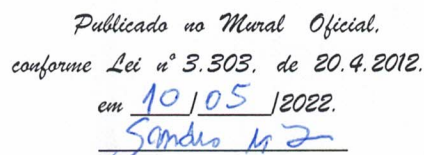 Publicado no Mural Oficial,
conforme Lei nº 3.303, de 20.4.2012.
em 10/05/2022.
Sandro